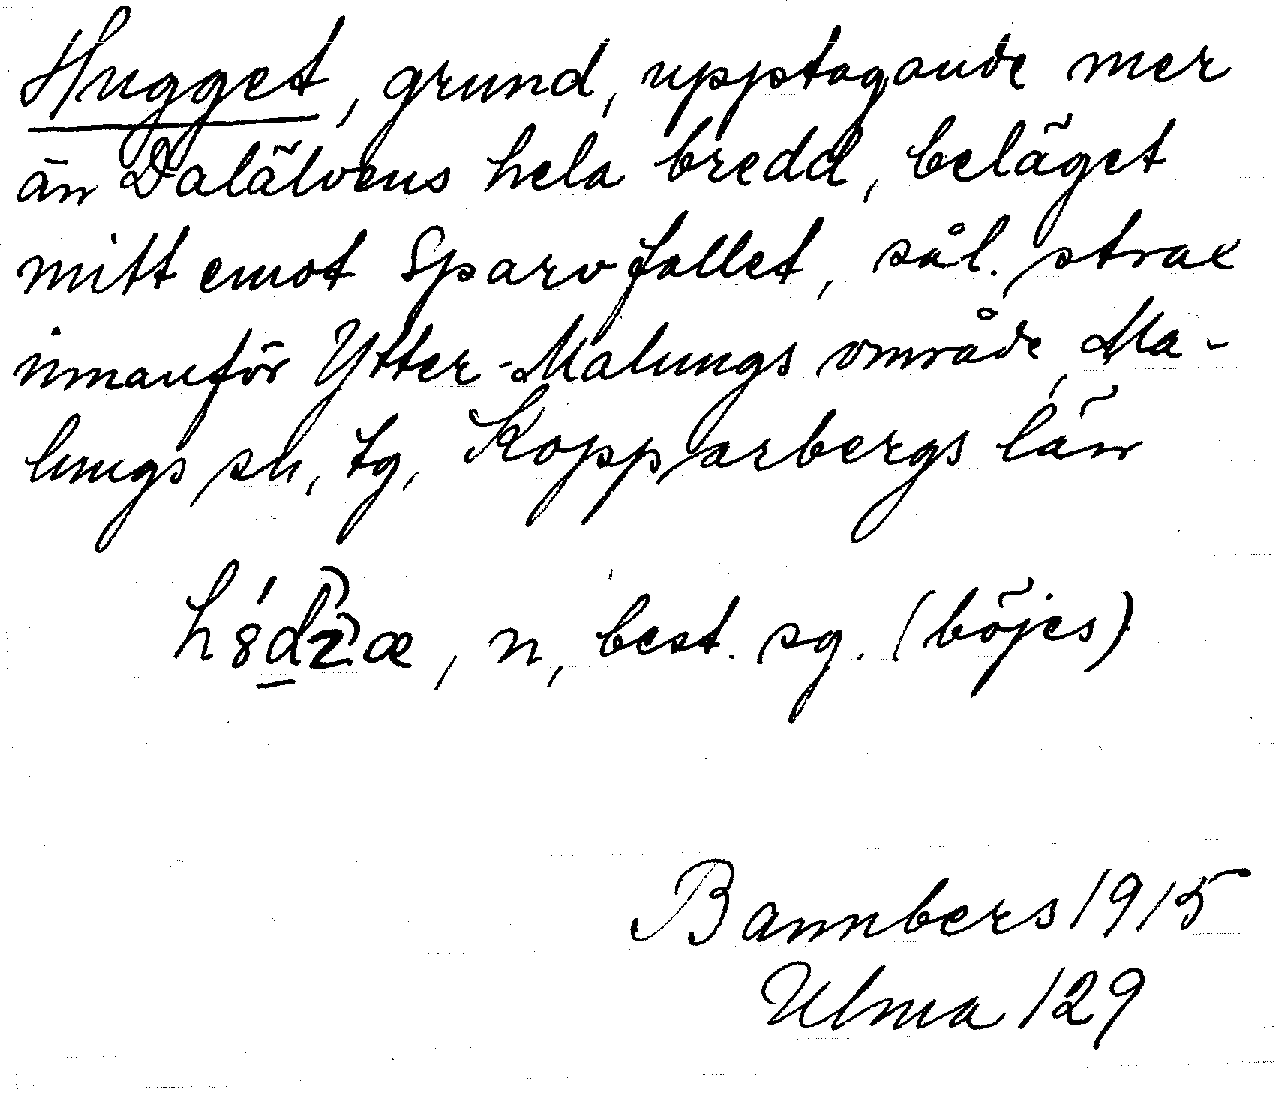 Hugget, grund, upptagande mer
än Dalälvens hela bredd, beläget
mitt emot Sparvfallet, sål. strax
innanför Ytter-Malungs område, Ma-
lungs sn, tg, Kopparbergs län
n, best. sg. (böjes)
Bannbers 1915
Ulma 129